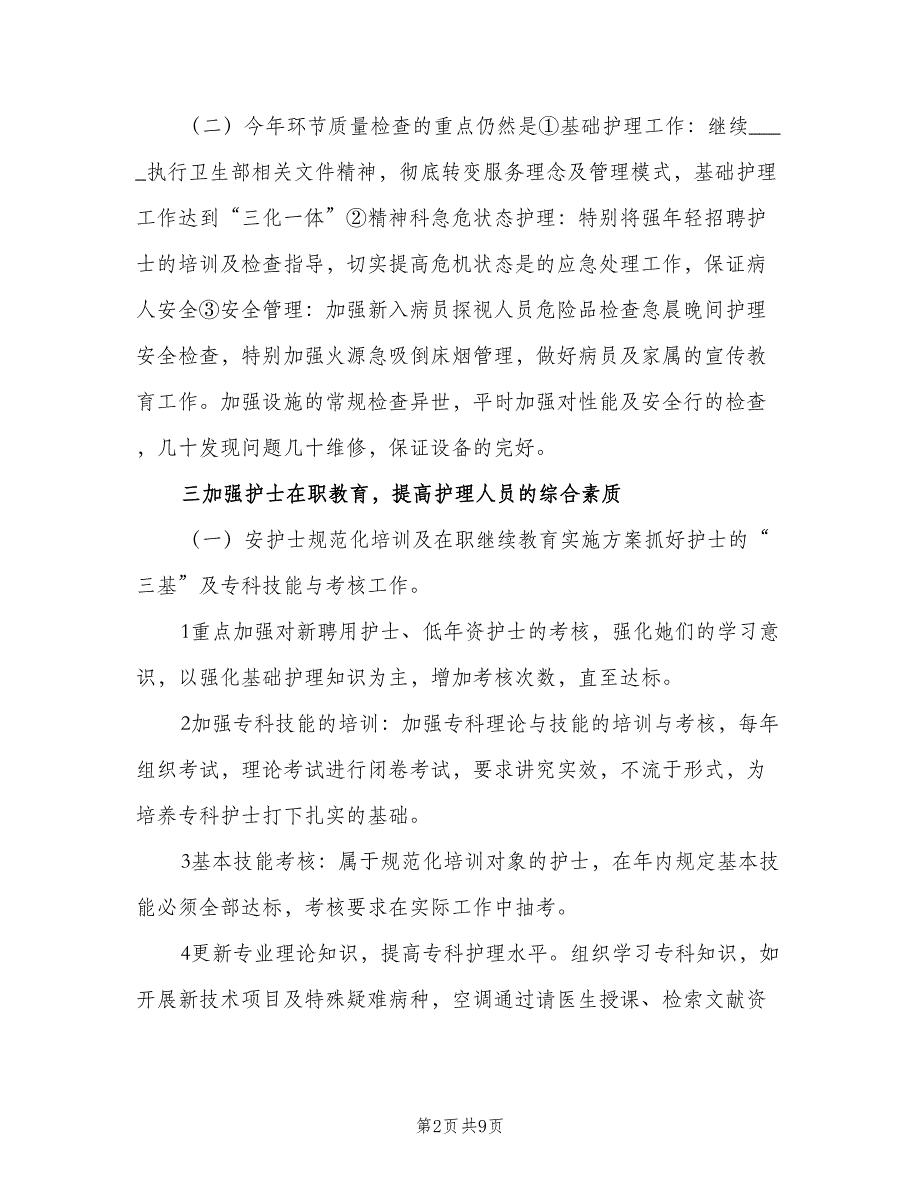 （二）今年环节质量检查的重点仍然是①基础护理工作：继续___
_执行卫生部相关文件精神，彻底转变服务理念及管理模式，基础护理
工作达到“三化一体”②精神科急危状态护理：特别将强年轻招聘护
士的培训及检查指导，切实提高危机状态是的应急处理工作，保证病
人安全③安全管理：加强新入病员探视人员危险品检查急晨晚间护理
安全检查，特别加强火源急吸倒床烟管理，做好病员及家属的宣传教
育工作。加强设施的常规检查异世，平时加强对性能及安全行的检查
，几十发现问题几十维修，保证设备的完好。
三加强护士在职教育，提高护理人员的综合素质
（一）安护士规范化培训及在职继续教育实施方案抓好护士的“
三基”及专科技能与考核工作。
1重点加强对新聘用护士、低年资护士的考核，强化她们的学习意
识，以强化基础护理知识为主，增加考核次数，直至达标。
2加强专科技能的培训：加强专科理论与技能的培训与考核，每年
组织考试，理论考试进行闭卷考试，要求讲究实效，不流于形式，为
培养专科护士打下扎实的基础。
3基本技能考核：属于规范化培训对象的护士，在年内规定基本技
能必须全部达标，考核要求在实际工作中抽考。
4更新专业理论知识，提高专科护理水平。组织学习专科知识，如
开展新技术项目及特殊疑难病种，空调通过请医生授课、检索文献资
第2页 共9页